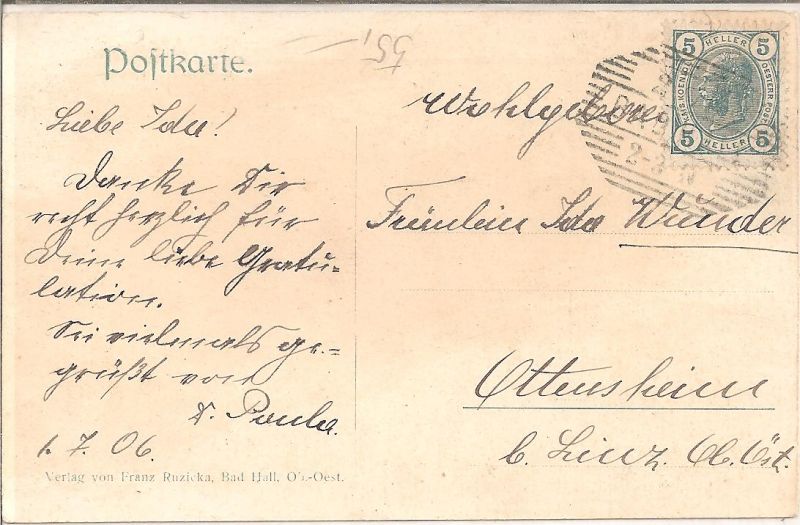 Postkarte.
55,
Liebe Ida!
Danke Dir
recht herzlich für
Deine liebe Gratu-
lation.
Sei vielmals ge-
grüßt von
D. Paula.
1.7.06.
Verlag von Franz Ruzicka, Bad Hall, Ob.-Oest.
Wohlgeboren
Fräulein Ida Wunder
Ottensheim
b. Linz. Ob. Öst.
5 HELLER 5
KAIS. KOENIGL. OESTERR. POST
5 HELLER 5